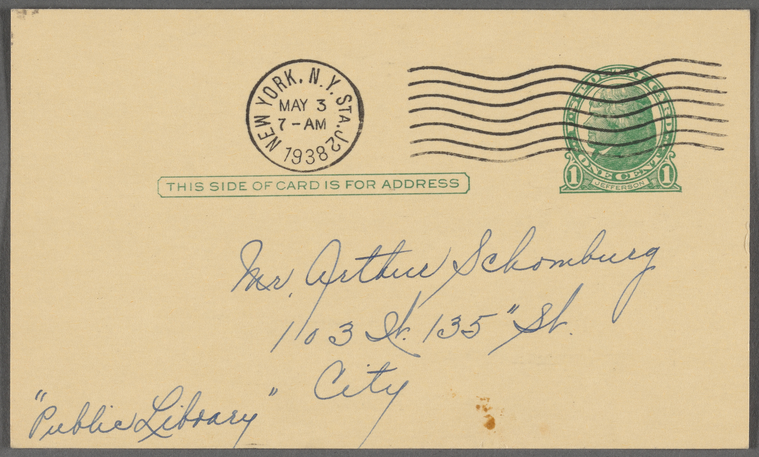 NEW YORK, N.Y. STA. J2
MAY 3
7 - AM
1938
U.S. POSTAL CARD
1 ONE CENT 1
JEFFERSON
THIS SIDE OF CARD IS FOR ADDRESS
Mr. Arthur Schomburg
103 W. 135" St.
City
"Public Library"